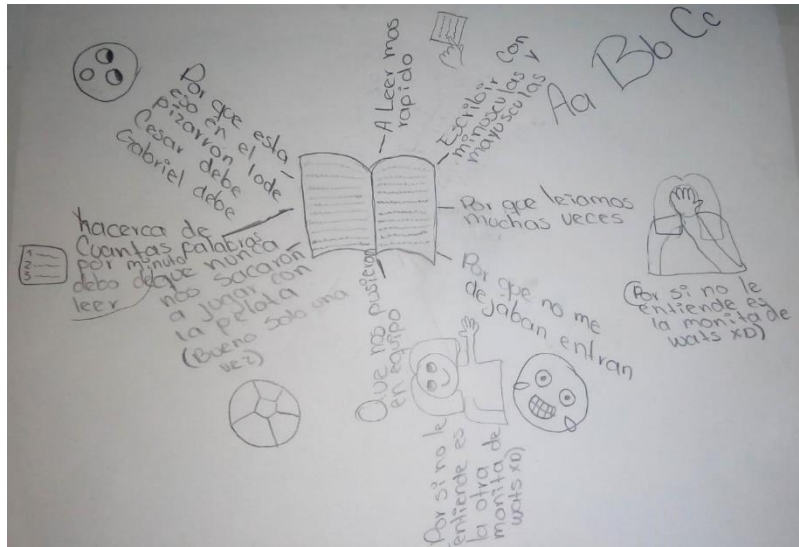 Por que esta
eso en el
pizarron lode
Cesar debe
Gabriel debe
- A Leer mas
rapido
- Escribir con
minusculas y
mayusculas
Aa Bb Cc
Por que leiamos
muchas veces
Por que no me
dejaban entrar
(Por si no le
entiende es
la monita de
wats XD)
Que nos pusieron
en equipo
Por si no le
entiende es
la otra
monita de
wats XD)
que nunca
nos sacaron
a jugar con
la pelota
(Bueno solo una
vez)
hacerca de
Cuantas palabras
por minuto
debo de
leer
1
2
3